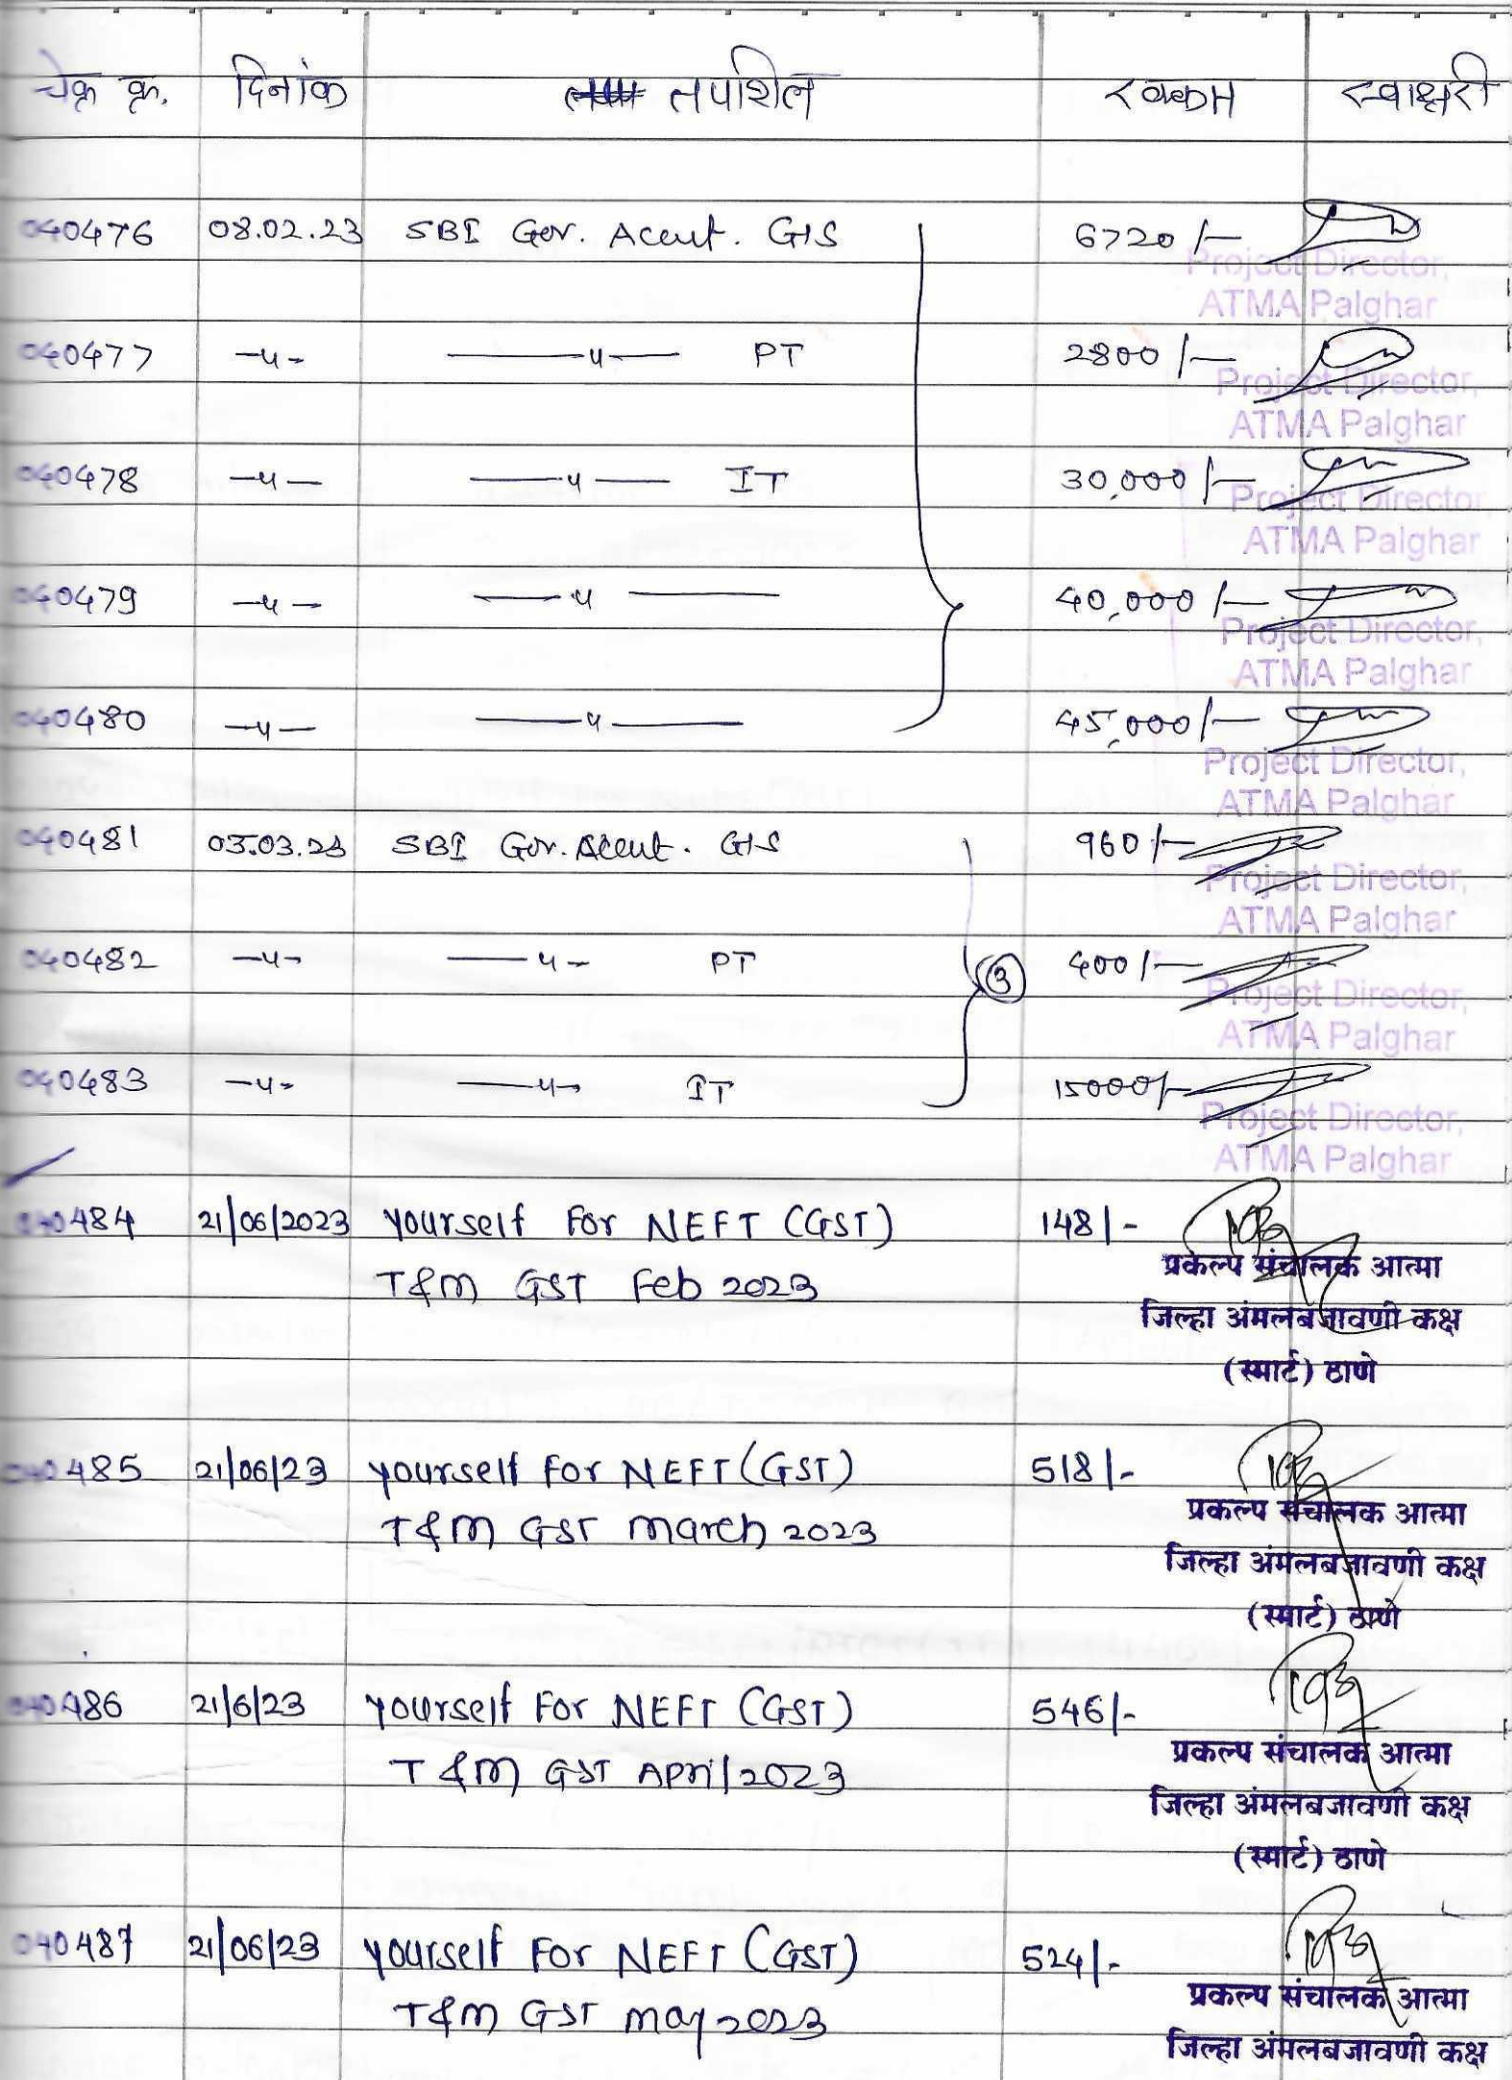 चेक क्र. दिनांक तपशिल रक्कम स्वाक्षरी
040476 08.02.23 SBI Gov. Accut. GIS 6720/-
Project Director,
ATMA Palghar
040477 —"— —"— PT 2800/-
Project Director,
ATMA Palghar
040478 —"— —"— IT 30,000/-
Project Director,
ATMA Palghar
040479 —"— —"— 40,000/-
Project Director,
ATMA Palghar
040480 —"— —"— 45,000/-
Project Director,
ATMA Palghar
040481 03.03.23 SBI Gov. Accut. GIS 960/-
Project Director,
ATMA Palghar
040482 —"— —"— PT 3 400/-
Project Director,
ATMA Palghar
040483 —"— —"— IT 15000/-
Project Director,
ATMA Palghar
040484 21/06/2023 yourself For NEFT (GST) 148/-
प्रकल्प संचालक आत्मा
T&M GST Feb 2023
जिल्हा अंमलबजावणी कक्ष
(स्मार्ट) ठाणे
040485 21/06/23 yourself For NEFT (GST) 518/-
प्रकल्प संचालक आत्मा
T&M GST March 2023
जिल्हा अंमलबजावणी कक्ष
(स्मार्ट) ठाणे
040486 21/6/23 yourself For NEFT (GST) 546/-
प्रकल्प संचालक आत्मा
T&M GST April 2023
जिल्हा अंमलबजावणी कक्ष
(स्मार्ट) ठाणे
040487 21/06/23 yourself For NEFT (GST) 524/-
प्रकल्प संचालक आत्मा
T&M GST may 2023
जिल्हा अंमलबजावणी कक्ष